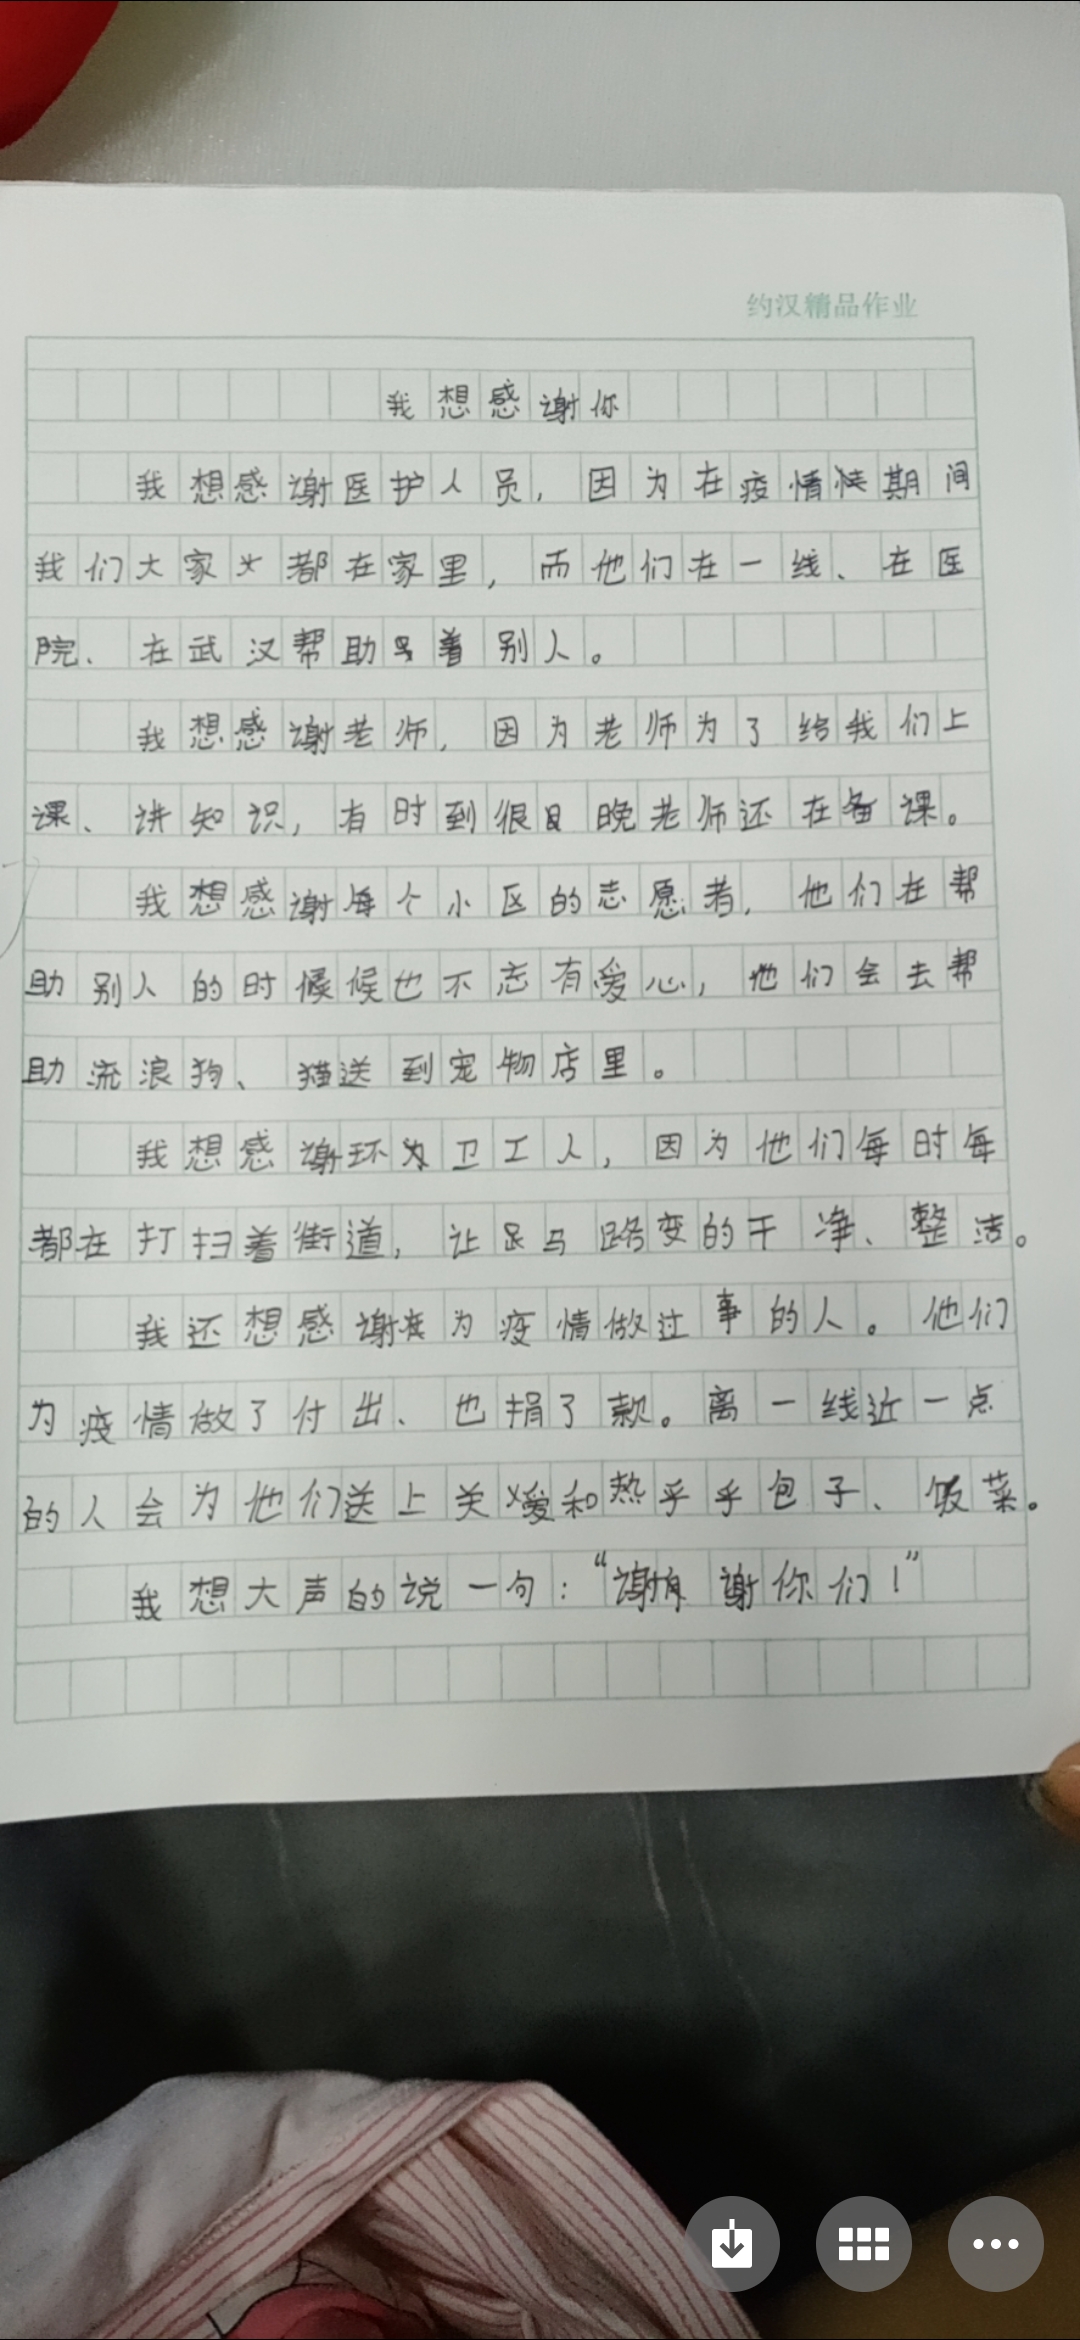 约汉精品作业
我想感谢你
我想感谢医护人员，因为在疫情期间
我们大家都在家里，而他们在一线、在医
院、在武汉帮助着别人。
我想感谢老师，因为老师为了给我们上
课、讲知识，有时到很晚老师还在备课。
我想感谢每个小区的志愿者，他们在帮
助别人的时候候也不忘有爱心，他们会去帮
助流浪狗、猫送到宠物店里。
我想感谢环卫工人，因为他们每时每
都在打扫着街道，让马路变的干净、整洁。
我还想感谢为疫情做过事的人。他们
为疫情做了付出、也捐了款。离一线近一点
的人会为他们送上关爱和热乎乎包子、饭菜。
我想大声的说一句：“谢谢你们！”